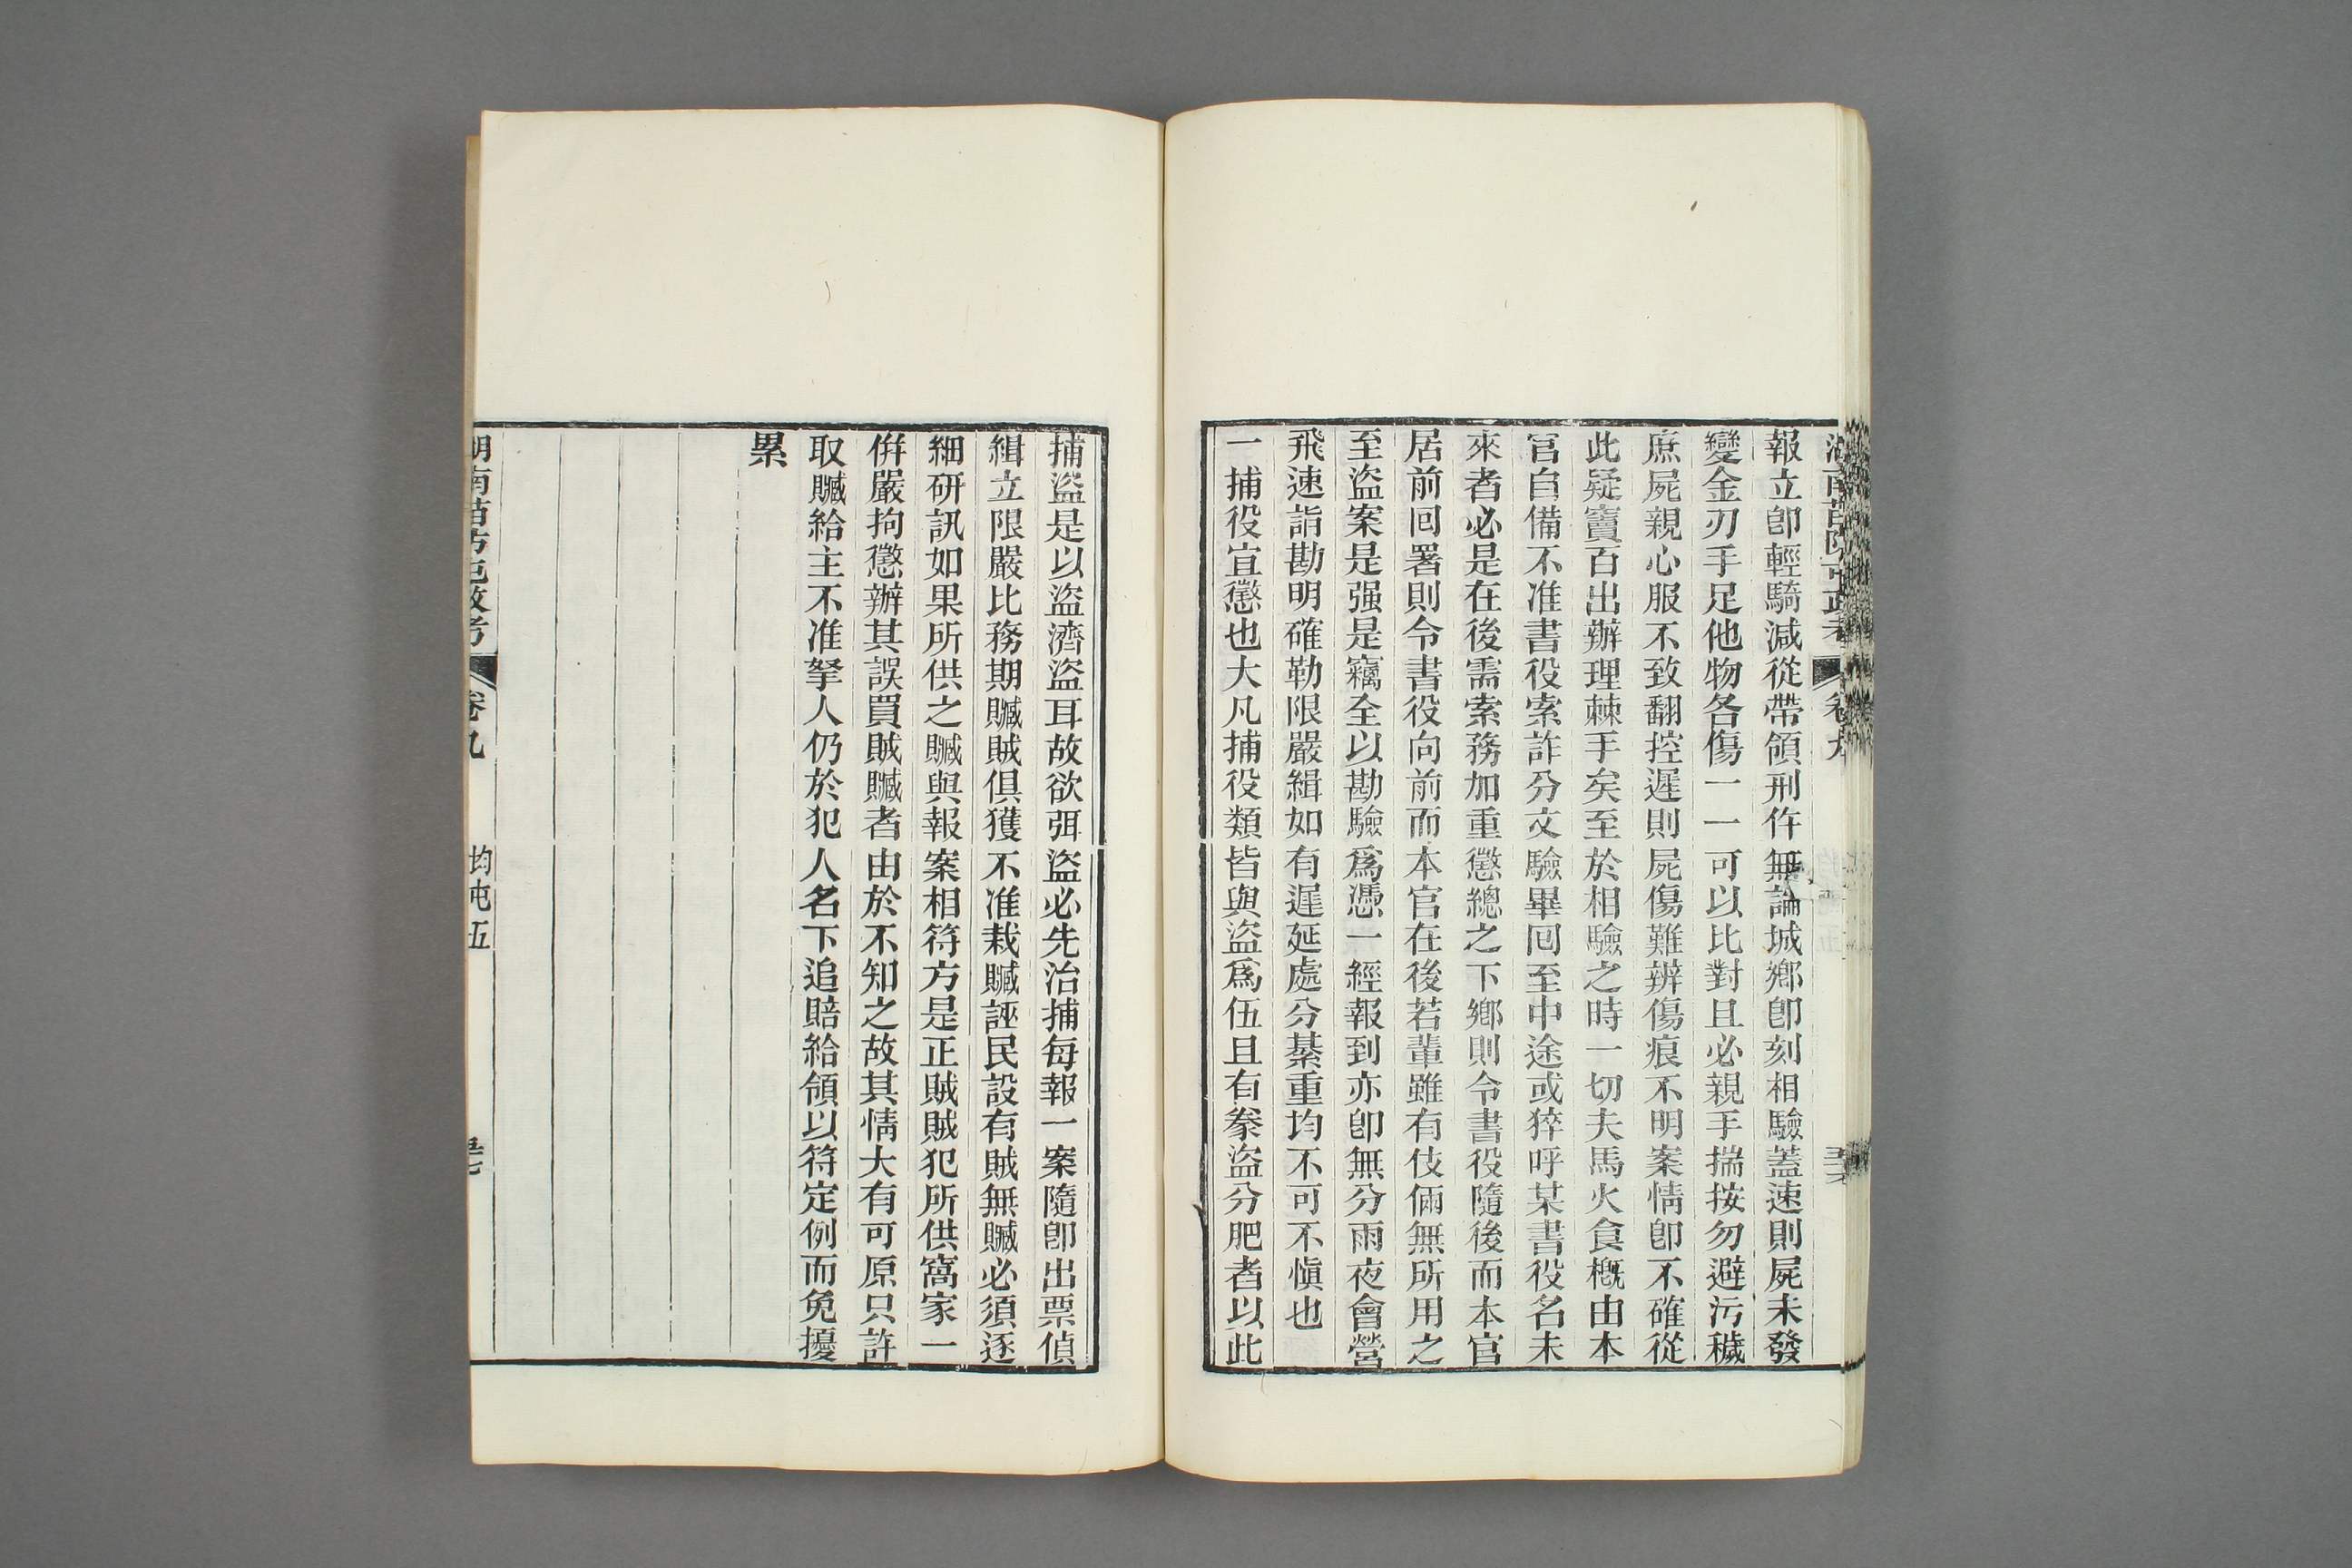 報立卽輕騎減從帶領刑仵無論城鄕卽刻相驗蓋速則屍未發
變金刃手足他物各傷一一可以比對且必親手揣按勿避污穢
庶屍親心服不致翻控遲則屍傷難辨傷痕不明案情卽不確從
此疑竇百出辦理棘手矣至於相驗之時一切夫馬火食槪由本
官自備不准書役索詐分文驗畢囘至中途或猝呼某書役名未
來者必是在後需索務加重懲總之下鄕則令書役隨後而本官
居前囘署則令書役向前而本官在後若輩雖有伎倆無所用之
至盜案是强是竊全以勘驗爲憑一經報到亦卽無分雨夜會營
飛速詣勘明確勒限嚴緝如有遲延處分綦重均不可不愼也
一捕役宜懲也大凡捕役類皆與盜爲伍且有豢盜分肥者以此
捕盜是以盜濟盜耳故欲弭盜必先治捕每報一案隨卽出票偵
緝立限嚴比務期贓賊俱獲不准栽贓誣民設有賊無贓必須逐
細研訊如果所供之贓與報案相符方是正賊賊犯所供窩家一
倂嚴拘懲辦其誤買賊贓者由於不知之故其情大有可原只許
取贓給主不准拏人仍於犯人名下追賠給領以符定例而免擾
累
湖南苗防屯政考 卷九 均屯五